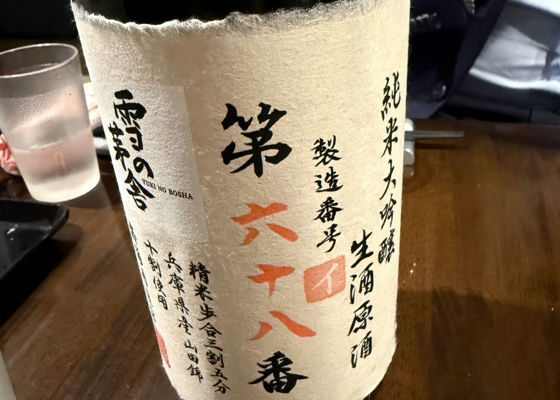 純米大吟醸
生酒原酒
製造番号
イ
第六十八番
雪の茅舎
YUKI NO BOSHA
精米歩合三割五分
兵庫県産山田錦
十割使用